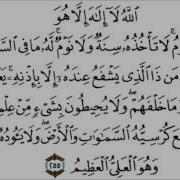 ٱللَّهُ لَآ إِلَٰهَ إِلَّا هُوَ
ومُ لَا تَأْخُذُهُۥ سِنَةٌ وَلَا نَوْمٌ لَّهُۥ مَا فِى ٱلسَّ
مَن ذَا ٱلَّذِى يَشْفَعُ عِندَهُۥٓ إِلَّا بِإِذْنِهِۦ يَع
وَمَا خَلْفَهُمْ وَلَا يُحِيطُونَ بِشَىْءٍ مِّنْ عِلْمِ
عَ كُرْسِيُّهُ ٱلسَّمَٰوَٰتِ وَٱلْأَرْضَ وَلَا يَـُٔودُهُۥ
وَهُوَ ٱلْعَلِىُّ ٱلْعَظِيمُ ٢٥٥